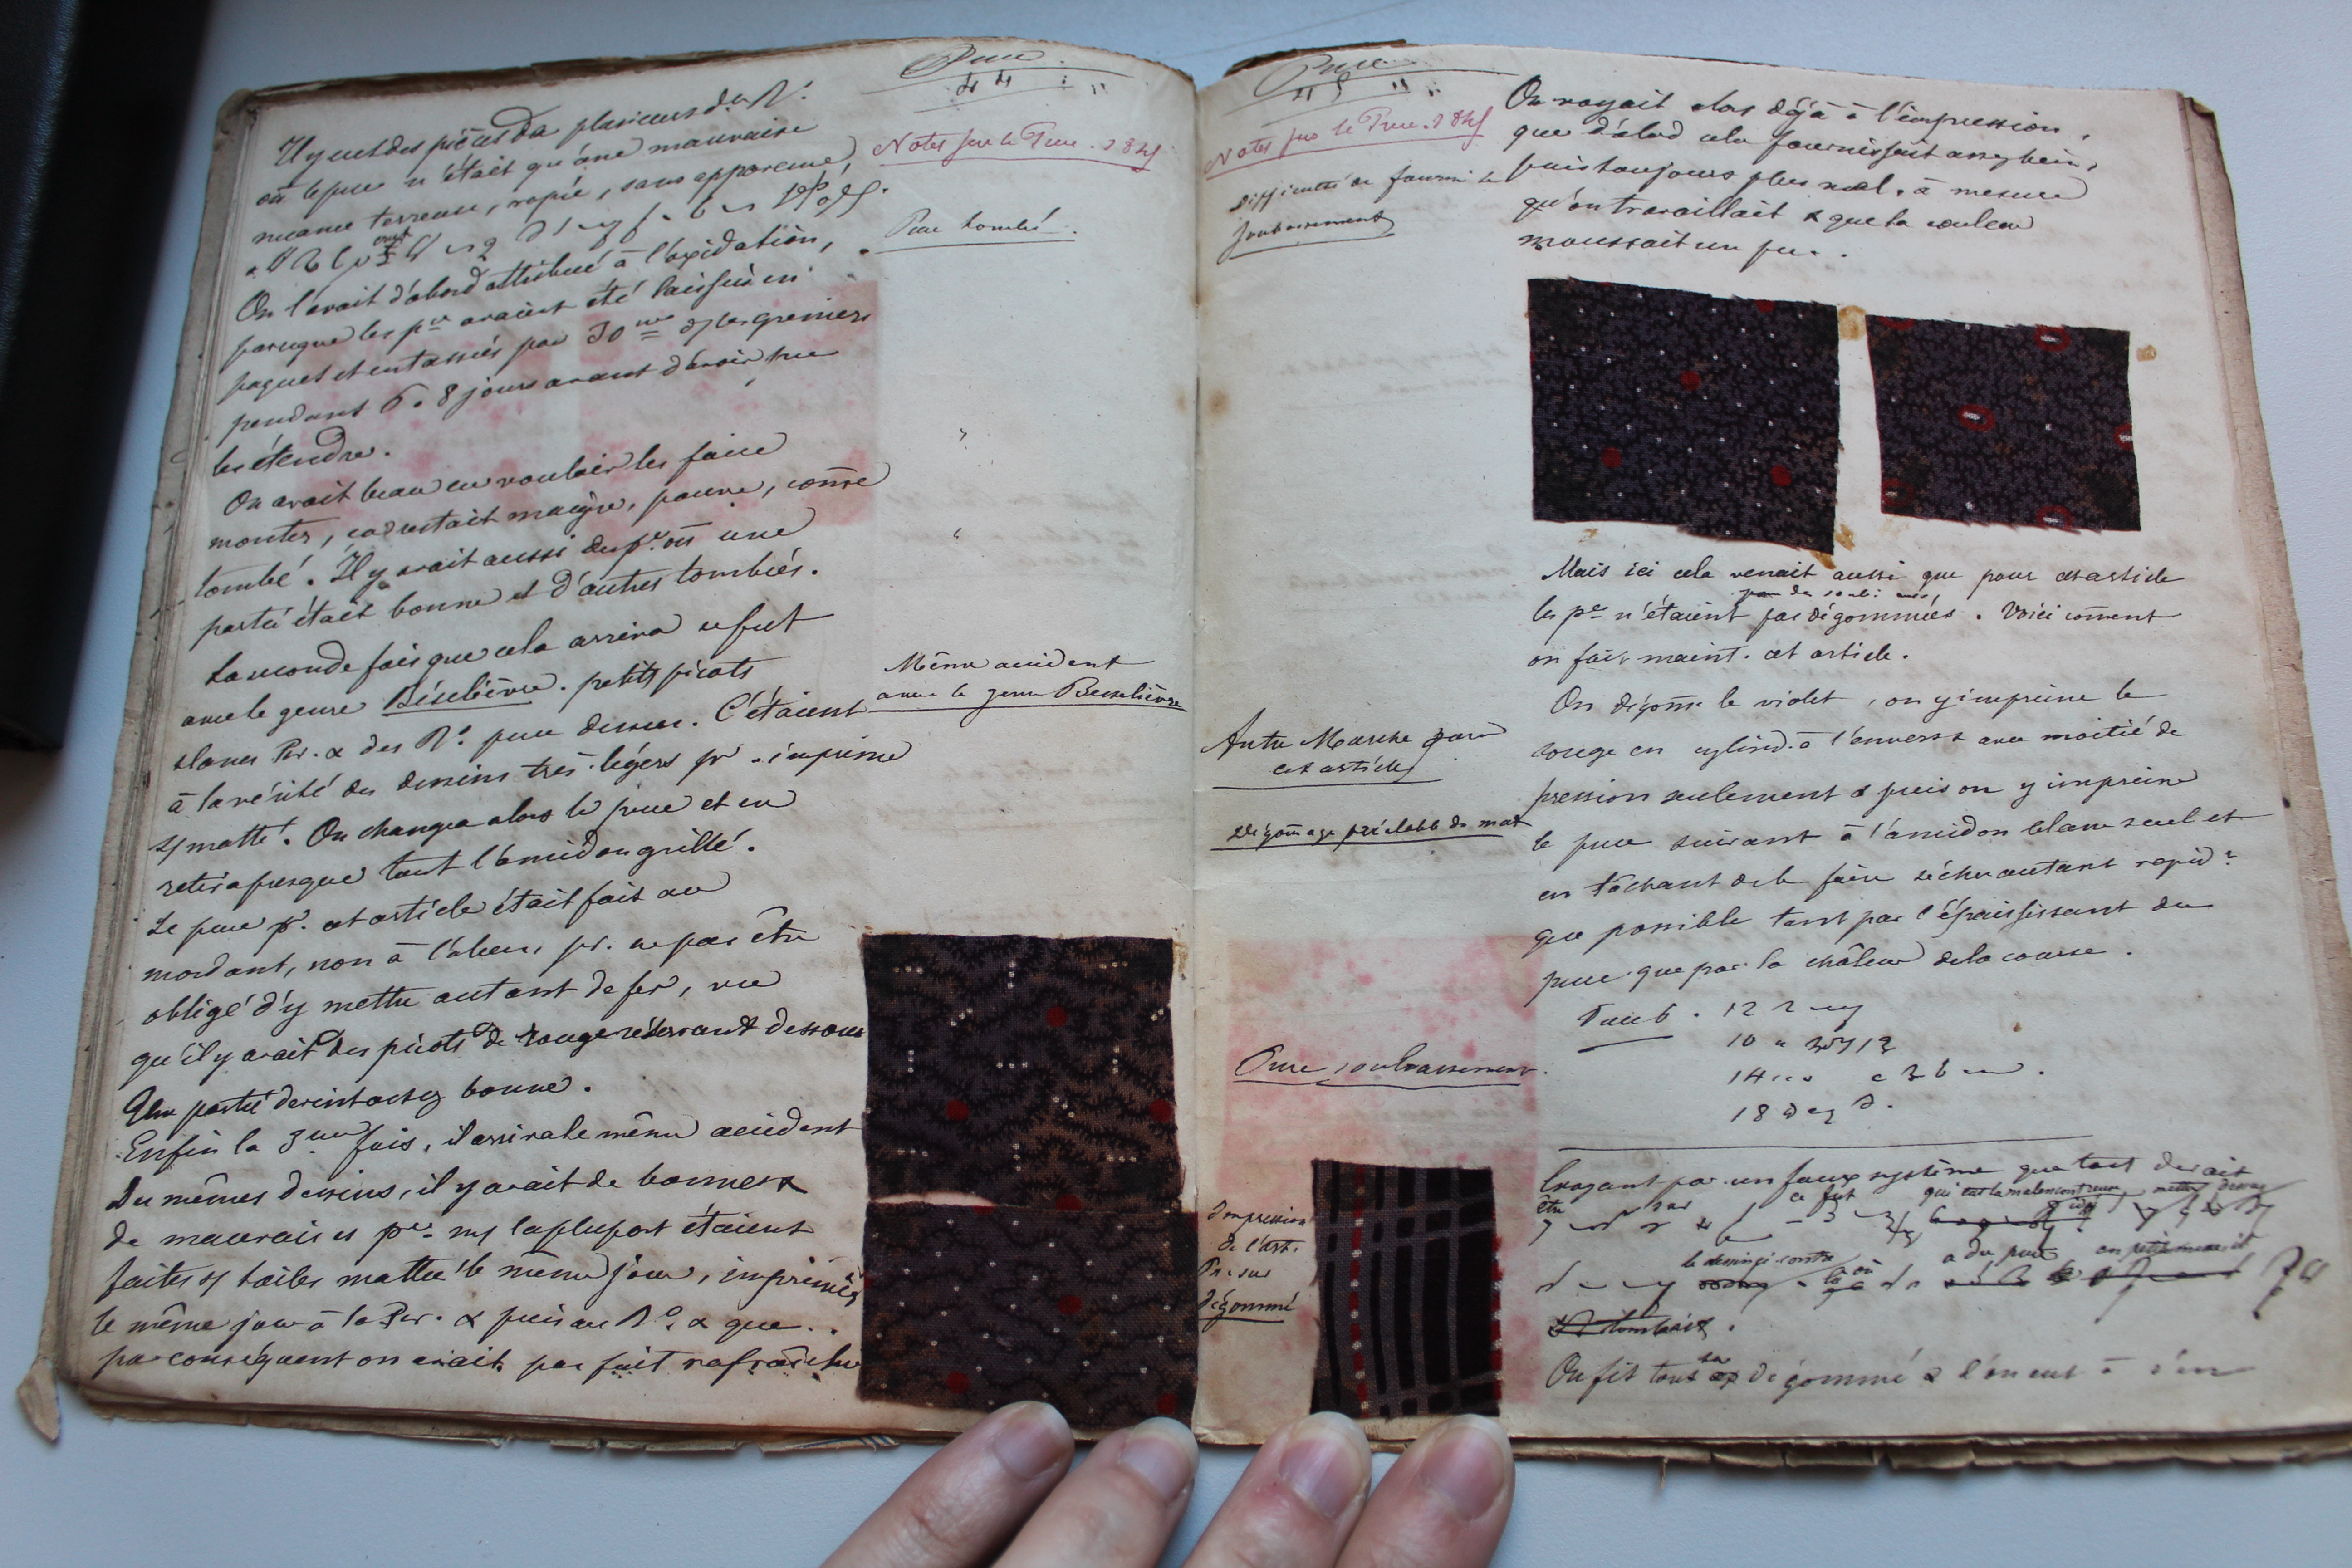 Puce
44
Notes sur le Puce. 184
Il y eut des pièces de plusieurs des R.
où le puce n'était qu'une mauvaise
nuance terreuse, rapée, sans apparence,
On l'avait d'abord attribué à l'oxidation,
parceque les p.ces avaient été laissées en
paquet et entassées par 30 ds les greniers
pendant 6 à 8 jours avant d'avoir pu
les étendre.
On avait beau en vouloir les faire
monter, ça restait maigre, pauvre, come
tombé. Il y avait aussi des p.ces où une
partie était bonne et d'autres tombées.
Puce tombé.
La seconde fois que cela arriva ce fut
avec le genre Béselièvre. petits picots
blancs Per. & des R.o puce dessus. C'étaient
à la vérité des dessins très-légers pr. imprimé
s/ matté. On changea alors le puce et en
retira presque tout l'amidon grillé.
Le puce pr. cet article était fait au
mordant, non à l'alun, pr. ne pas être
obligé d'y mettre autant de fer, vu
qu'il y avait des picots de rouge réservant dessous
Une partie devint assez bonne.
Même accident
avec le genre Besselièvre
Enfin la 3me fois, il arriva le même accident
Des mêmes dessins, il y avait de bonnes &
de mauvaises p.ces la plupart étaient
faites s/ toiles mattées le même jour, imprimées
le même jour à la Per. & puis au R.o & que..
par conséquent on avait pas fait rafraichir
Puce
45
Notes sur le Puce. 184
Difficulté de fournir le
soubassement
On voyait alors déjà à l'impression,
que d'abord cela fournissait assez bien,
puis toujours plus mal, à mesure
qu'on travaillait & que la couleur
moussait un peu.
Mais ici cela venait aussi que pour cet article
les p.ces n'étaient pas dégommées. Voici coment
on fait maint. cet article.
Autre Marche pour
cet article
Dégomage préalable du mat
On dégome le violet, on y imprime le
rouge en cylind. à l'envers avec moitié de
pression seulement & puis on y imprime
le puce suivant à l'amidon blanc seul et
en tâchant de le faire sécher autant rapid.t
que possible tant par l'épaississant du
puce que par la chaleur de la course.
Puce soubassement.
Puce 6. 12
10
14
18
Impression
de l'art.
Puce sur
dégommé
Croyant par un faux système que tout devait
être par ce fut
On fit tout sa dégommé & l'on eut à s'en